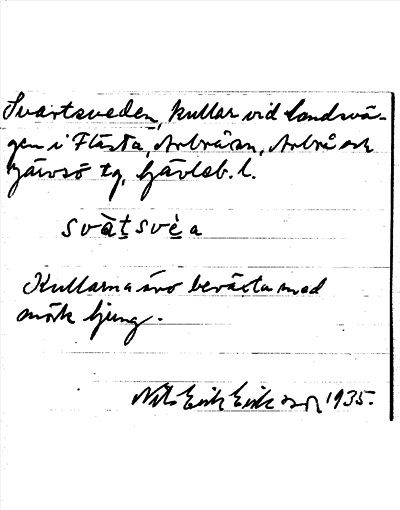 Svartsveden, kullar vid landsvä-
gen i Flästa, Arbrå sn, Arbrå och
Järvsö tg, Gävleb. l.
svàt̠ svè̠a
Kullarna äro bevästa med
mörk ljung.
Nils Erik Eriksson 1935.